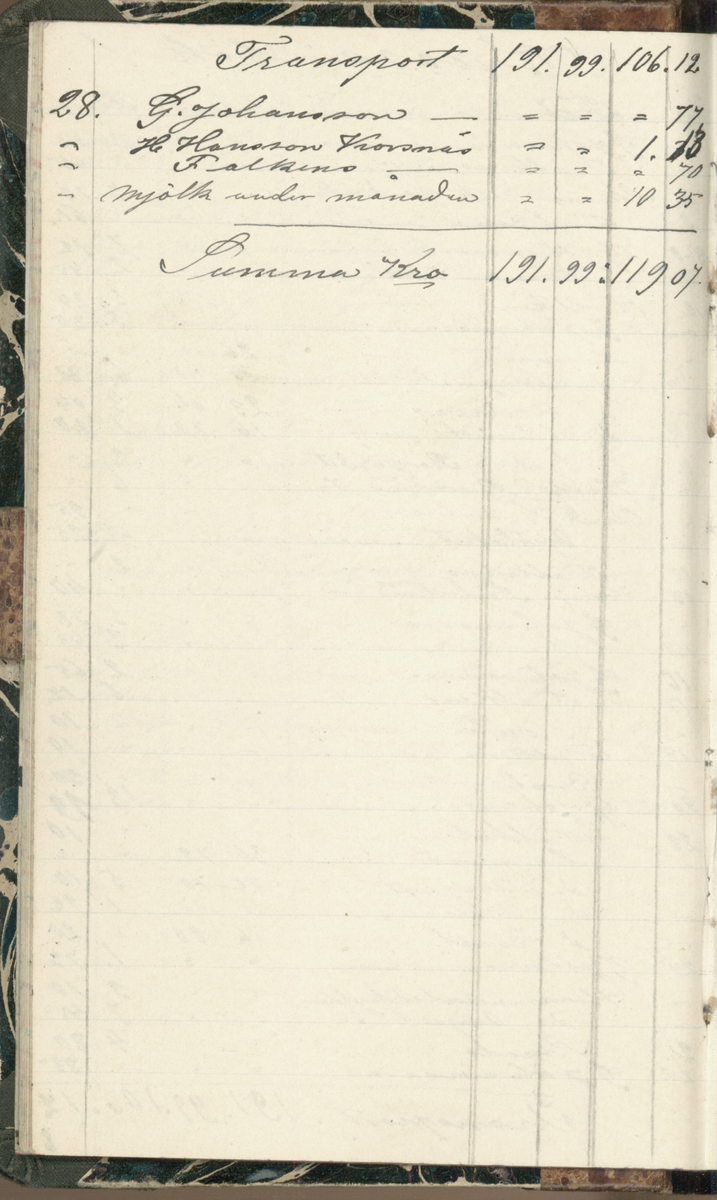 Transport 191. 99. 106. 12
28. G. Johansson — " " " 77
" H Hansson Korsnäs " " 1. 13
" Falkens — " " " 70
" Mjölk under månaden " " 10 35
Summa Kro 191. 99: 119 07.